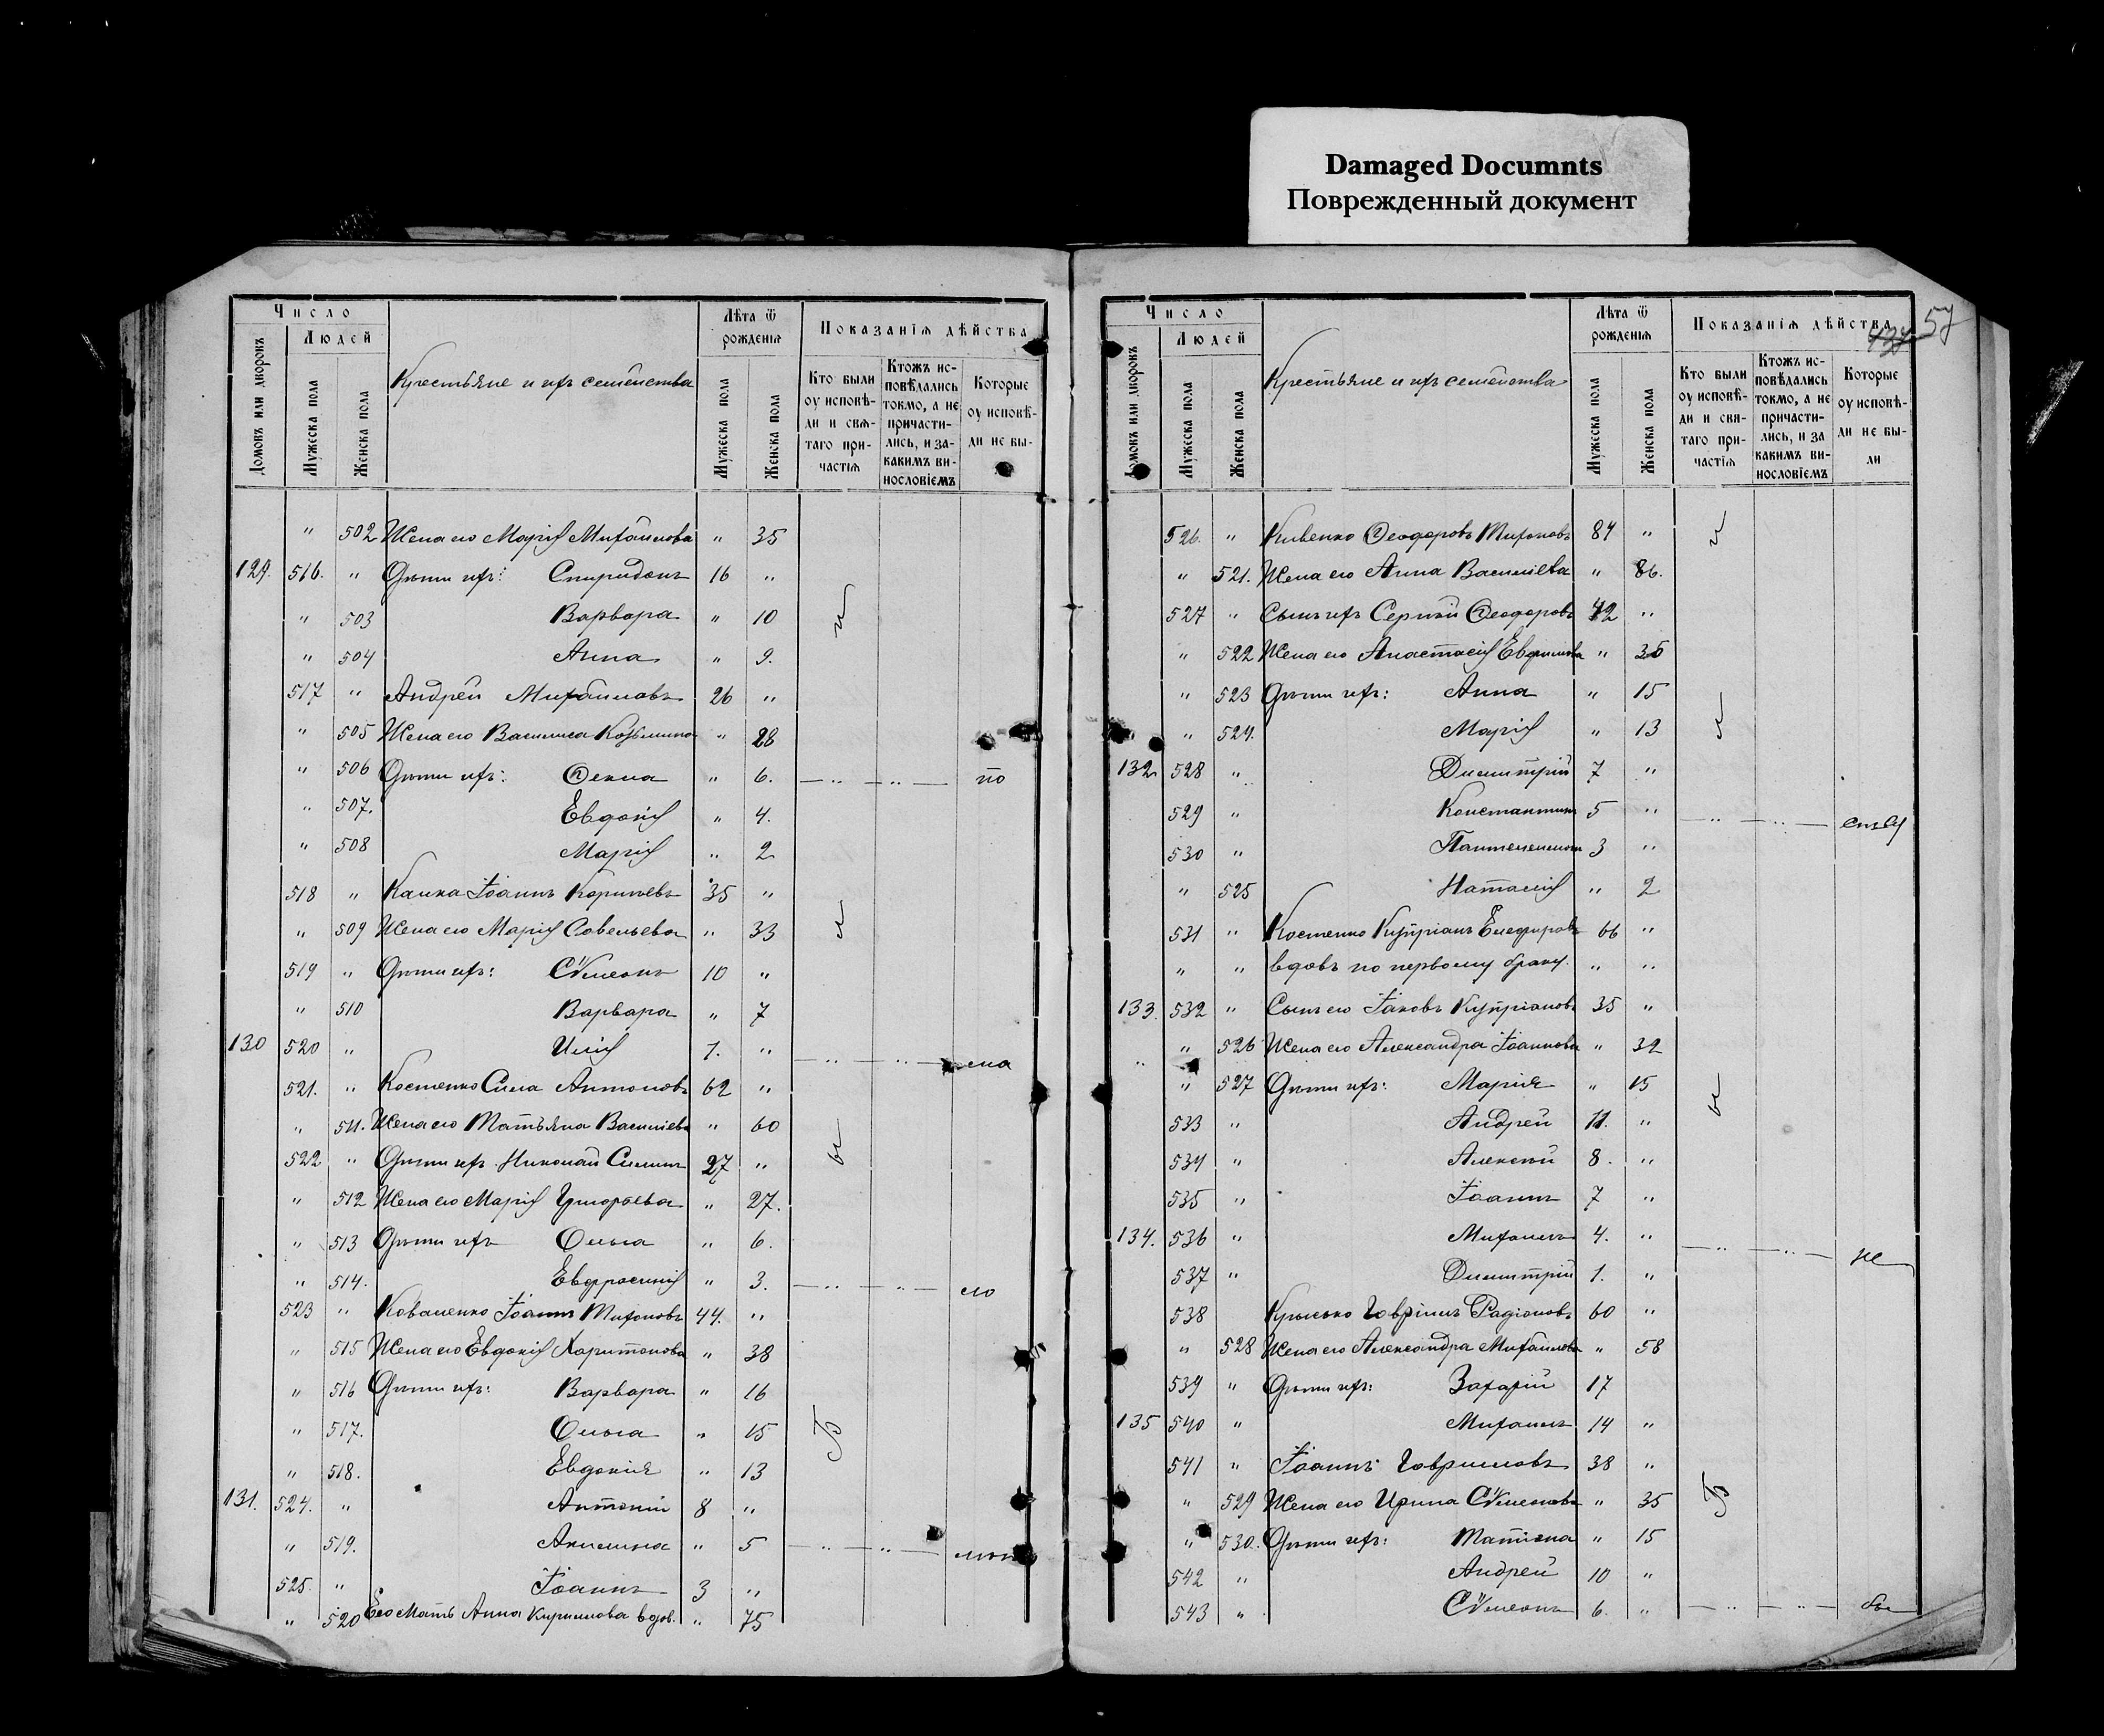 Damaged Documnts
Поврежденный документ
Число
Людей
Домовъ или дворовъ
Мужеска пола
Женска пола
Крестьяне и ихъ семейства
Лѣта ѿ рожденія
Мужеска пола
Женска пола
Показанія дѣйства
Кто были оу исповѣди и свѧтаго причастіѧ
Ктожъ исповѣдались токмо, а не причастились, и за какимъ винословіемъ
Которые оу исповѣди не бы-
" 502 Жена его Марія Михайлова " 35
129. 516. " Дѣти ихъ: Спиридонъ 16 "
" 503 Варвара " 10
" 504 Анна " 9.
517 " Андрей Михайловъ 26 "
" 505 Жена его Василиса Козьмина " 28
" 506 Дѣти ихъ: Ѳекла " 6. — " — " — по
" 507. Евдокія " 4.
" 508 Марія " 2
518 " Іоаннъ 35 "
" 509 Жена его Марія Савельева " 33
519 " Дѣти ихъ: Сѵмеонъ 10 "
" 510 Варвара " 7
130 520 " Илія 1. "
521. " Костенко Сила Антоновъ 62 "
" 511. Жена его Татьяна Василіева " 60
522 " Дѣти ихъ Николай Силинъ 27 "
" 512 Жена его Марія Григорьева " 27.
" 513 Дѣти ихъ Ольга " 6.
" 514. Евфросинія " 3. — " — " —
523 " Коваленко Іоаннъ Тихоновъ 44. "
" 515 Жена его Евдокія Харитонова " 38
" 516 Дѣти ихъ: Варвара " 16
" 517. Ольга " 15
" 518. Евдокія " 13
131. 524. " Антоній 8 "
" 519. Акилина " 5 — " — " —
525. " Іоаннъ 3 "
" 520 Его мать Анна Кириллова вдов. " 75
57
Число
Людей
Домовъ или дворовъ
Мужеска пола
Женска пола
Крестьяне и ихъ семейства
Лѣта ѿ рожденія
Мужеска пола
Женска пола
Показанія дѣйства
Кто были оу исповѣди и свѧтаго причастіѧ
Ктожъ исповѣдались токмо, а не причастились, и за какимъ винословіемъ
Которые оу исповѣди не были
526. " Кивенко Ѳеодоръ Тихоновъ 84 "
" 521. Жена его Анна Василіева " 86.
527 " Сынъ ихъ Сергій Ѳеодоровъ 42 "
" 522 Жена его Анастасія Евфимова " 36
" 523 Дѣти ихъ: Анна " 15
" 524. Марія " 13
132 528 " Димитрій 7 "
529 " Константинъ 5 " — " — " —
530 " Пантелеимонъ 3 "
" 525 Наталія " 2
531 " Костенко Кипріанъ Елефировъ 66 "
" " вдовъ по первому браку. " "
133. 532 " Сынъ его Іаковъ Кипріановъ 35 "
" 526 Жена его Александра Іоаннова " 32
" 527 Дѣти ихъ: Марія " 15
533 " Андрей 11. "
534 " Алексѣй 8. "
535 " Іоаннъ 7 "
134. 536 " Михаилъ 4. "
537 " Димитрій 1. " — " — " — не
538 Гавріилъ Радіоновъ 60 "
" 528 Жена его Александра Михайлова " 58
539 " Дѣти ихъ: Захарій 17
135 540 " Михаилъ 14 "
541 " Іоаннъ Гавриловъ 38 "
" 529 Жена его Ирина Сѵмеонова " 35
" 530. Дѣти ихъ: Татіана " 15
542 " Андрей 10 "
543 " Сѵмеонъ 6. " — " — " — бы